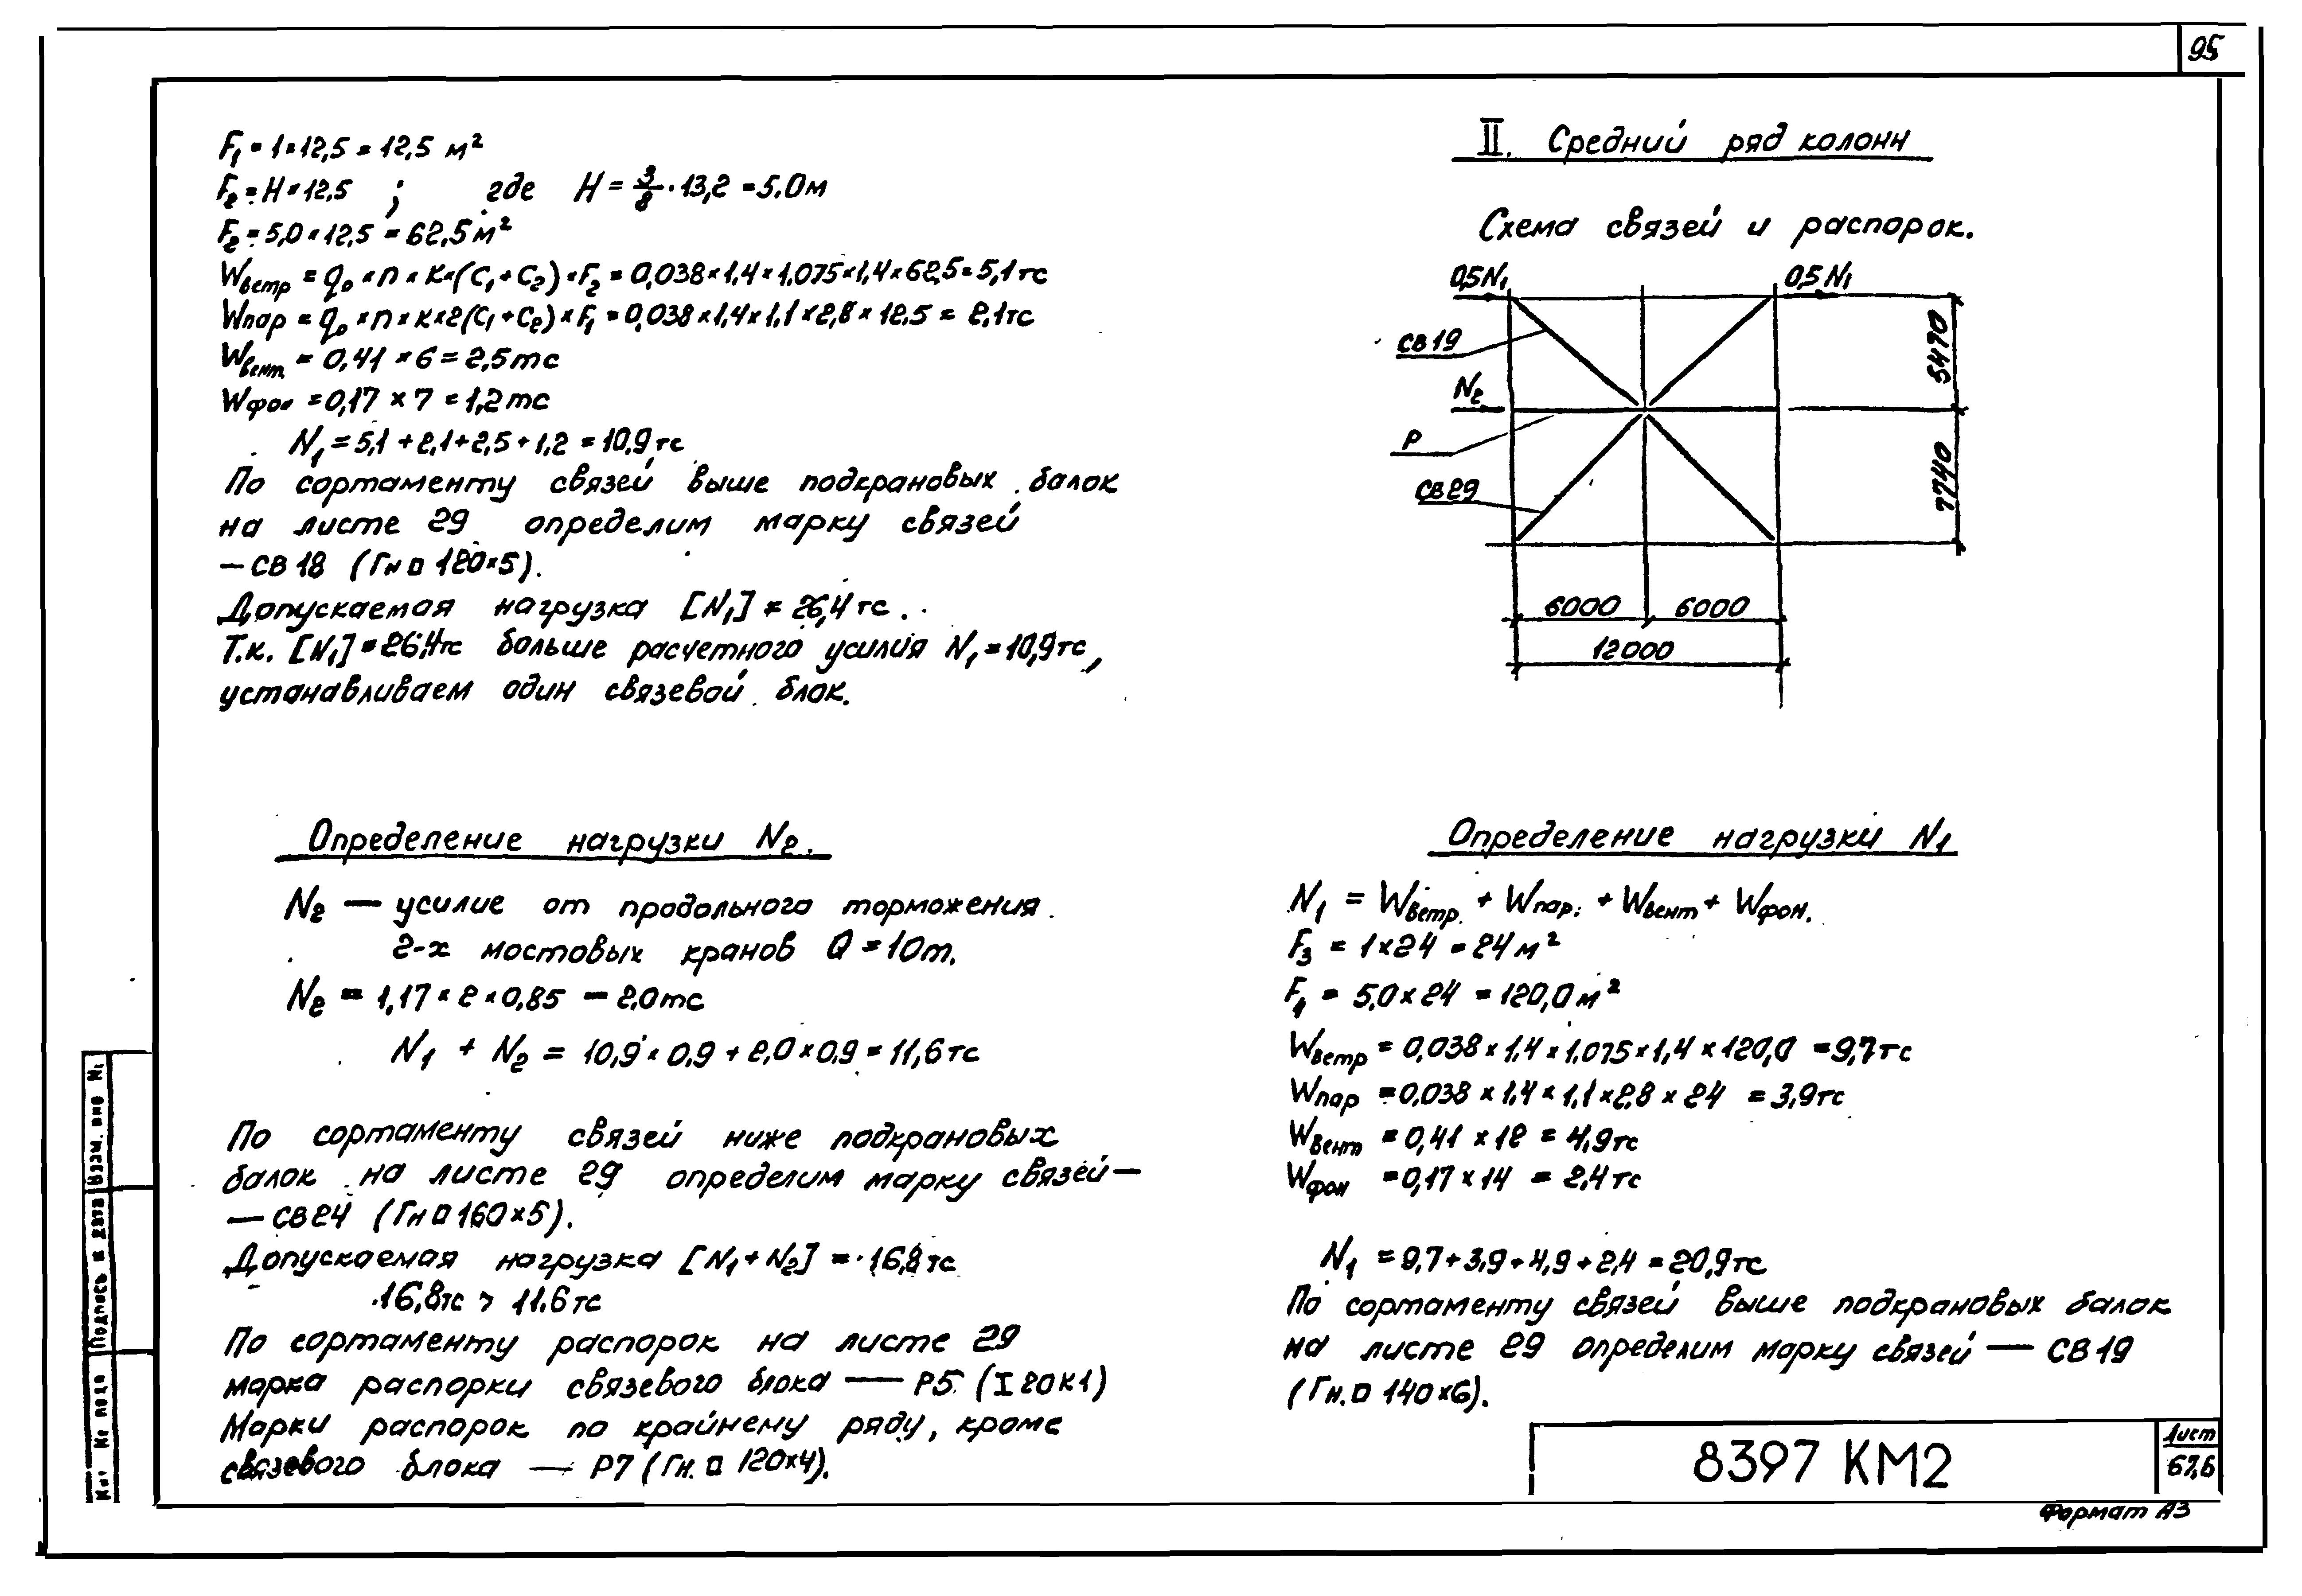 95
F₁ = 1×12,5 = 12,5 м²
F₂ = H×12,5 ; где H = 3/8 · 13,2 = 5,0м
F₂ = 5,0×12,5 = 62,5м²
Wветр = q₀ × n × к×(C₁ + C₂) × F₂ = 0,038×1,4×1,075×1,4×62,5=5,1тс
Wпар = q₀ × n × к×2(C₁ + C₂) × F₁ = 0,038×1,4×1,1×2,8×12.5 = 2,1тс
Wвент. = 0,41 × 6 = 2,5тс
Wфон = 0,17 × 7 = 1,2тс
N₁ = 5,1 + 2,1 + 2,5 + 1,2 = 10,9тс
По сортаменту связей выше подкрановых балок
на листе 29 определим марку связей
— СВ 18 (Гн □ 120×5).
Допускаемая нагрузка [N₁] = 26,4тс.
Т.к. [N₁] = 26,4тс больше расчетного усилия N₁ = 10,9тс,
устанавливаем один связевой блок.
Определение нагрузки N₂.
N₂ — усилие от продольного торможения
2-х мостовых кранов Q = 10т.
N₂ = 1,17 × 2 × 0,85 = 2,0тс
N₁ + N₂ = 10,9 × 0,9 + 2,0 × 0,9 = 11,6тс
По сортаменту связей ниже подкрановых
балок на листе 29 определим марку связей—
— СВ24 (Гн □ 160×5).
Допускаемая нагрузка [N₁ + N₂] = 16,8тс
16,8тс > 11.6тс
По сортаменту распорок на листе 29
марка распорки связевого блока — Р5 (I 20К1)
Марки распорок по крайнему ряду, кроме
связевого блока — Р7 (Гн. □ 120×4).
II. Средний ряд колонн
Схема связей и распорок.
0,5N₁
0,5 N₁
СВ19
N₂
Р
СВ29
5470
7740
6000
6000
12000
Определение нагрузки N₁
N₁ = Wветр. + Wпар. + Wвент + Wфон.
F₃ = 1×24 = 24м²
F₄ = 5,0×24 = 120,0м²
Wветр = 0,038×1,4×1,075×1,4×120,0 = 9,7тс
Wпар = 0,038×1,4×1,1×2,8×24 = 3,9тс
Wвент = 0,41 × 12 = 4,9тс
Wфон = 0,17×14 = 2,4тс
N₁ = 9,7+3,9+4,9+2,4 = 20,9тс
По сортаменту связей выше подкрановых балок
на листе 29 определим марку связей — СВ19
(Гн. □ 140×6).
8397 КМ2
Лист
67,6
Формат А3
Взам. инв №
Подпись и дата
Инв № подл